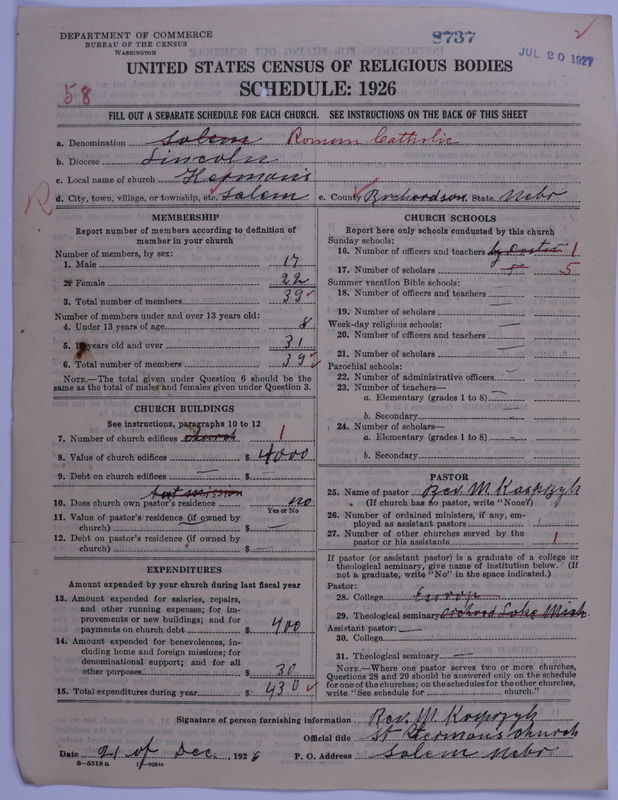 DEPARTMENT OF COMMERCE
BUREAU OF THE CENSUS
WASHINGTON
8737
JUL 20 1927
UNITED STATES CENSUS OF RELIGIOUS BODIES
SCHEDULE: 1926
58
FILL OUT A SEPARATE SCHEDULE FOR EACH CHURCH. SEE INSTRUCTIONS ON THE BACK OF THIS SHEET
a. Denomination Salem Roman Catholic
b. Diocese Lincoln
c. Local name of church Herman's
d. City, town, village, or township, etc. Salem e. County Richardson State Nebr
R
MEMBERSHIP
Report number of members according to definition of member in your church
Number of members, by sex:
1. Male 17
2. Female 22
3. Total number of members 39
Number of members under and over 13 years old:
4. Under 13 years of age 8
5. 13 years old and over 31
6. Total number of members 39
NOTE.—The total given under Question 6 should be the same as the total of males and females given under Question 3.
CHURCH BUILDINGS
See instructions, paragraphs 10 to 12
7. Number of church edifices church 1
8. Value of church edifices $ 4000
9. Debt on church edifices — $
but mission
10. Does church own pastor's residence no
Yes or No
11. Value of pastor's residence (if owned by church) $ —
12. Debt on pastor's residence (if owned by church) $ —
EXPENDITURES
Amount expended by your church during last fiscal year
13. Amount expended for salaries, repairs, and other running expenses; for improvements or new buildings; and for payments on church debt $ 400
14. Amount expended for benevolences, including home and foreign missions; for denominational support; and for all other purposes $ 30
15. Total expenditures during year $ 430
CHURCH SCHOOLS
Report here only schools conducted by this church
Sunday schools:
16. Number of officers and teachers by Pastor 1
17. Number of scholars 8 5
Summer vacation Bible schools:
18. Number of officers and teachers —
19. Number of scholars —
Week-day religious schools:
20. Number of officers and teachers —
21. Number of scholars —
Parochial schools:
22. Number of administrative officers —
23. Number of teachers—
a. Elementary (grades 1 to 8) —
b. Secondary —
24. Number of scholars—
a. Elementary (grades 1 to 8) —
b. Secondary
PASTOR
25. Name of pastor Rev. M. Kasprzyk
(If church has no pastor, write "None")
26. Number of ordained ministers, if any, employed as assistant pastors
27. Number of other churches served by the pastor or his assistants 1
If pastor (or assistant pastor) is a graduate of a college or theological seminary, give name of institution below. (If not a graduate, write "No" in the space indicated.)
Pastor:
28. College Europ
29. Theological seminary Orchard Lake Mich
Assistant pastor: —
30. College
31. Theological seminary —
NOTE.—Where one pastor serves two or more churches, Questions 28 and 29 should be answered only on the schedule for one of the churches; on the schedules for the other churches, write "See schedule for church."
Signature of person furnishing information Rev. M. Kasprzyk
Official title St Herman's Church
Date 21 of Dec., 1926 P. O. Address Salem Nebr
8—5518a